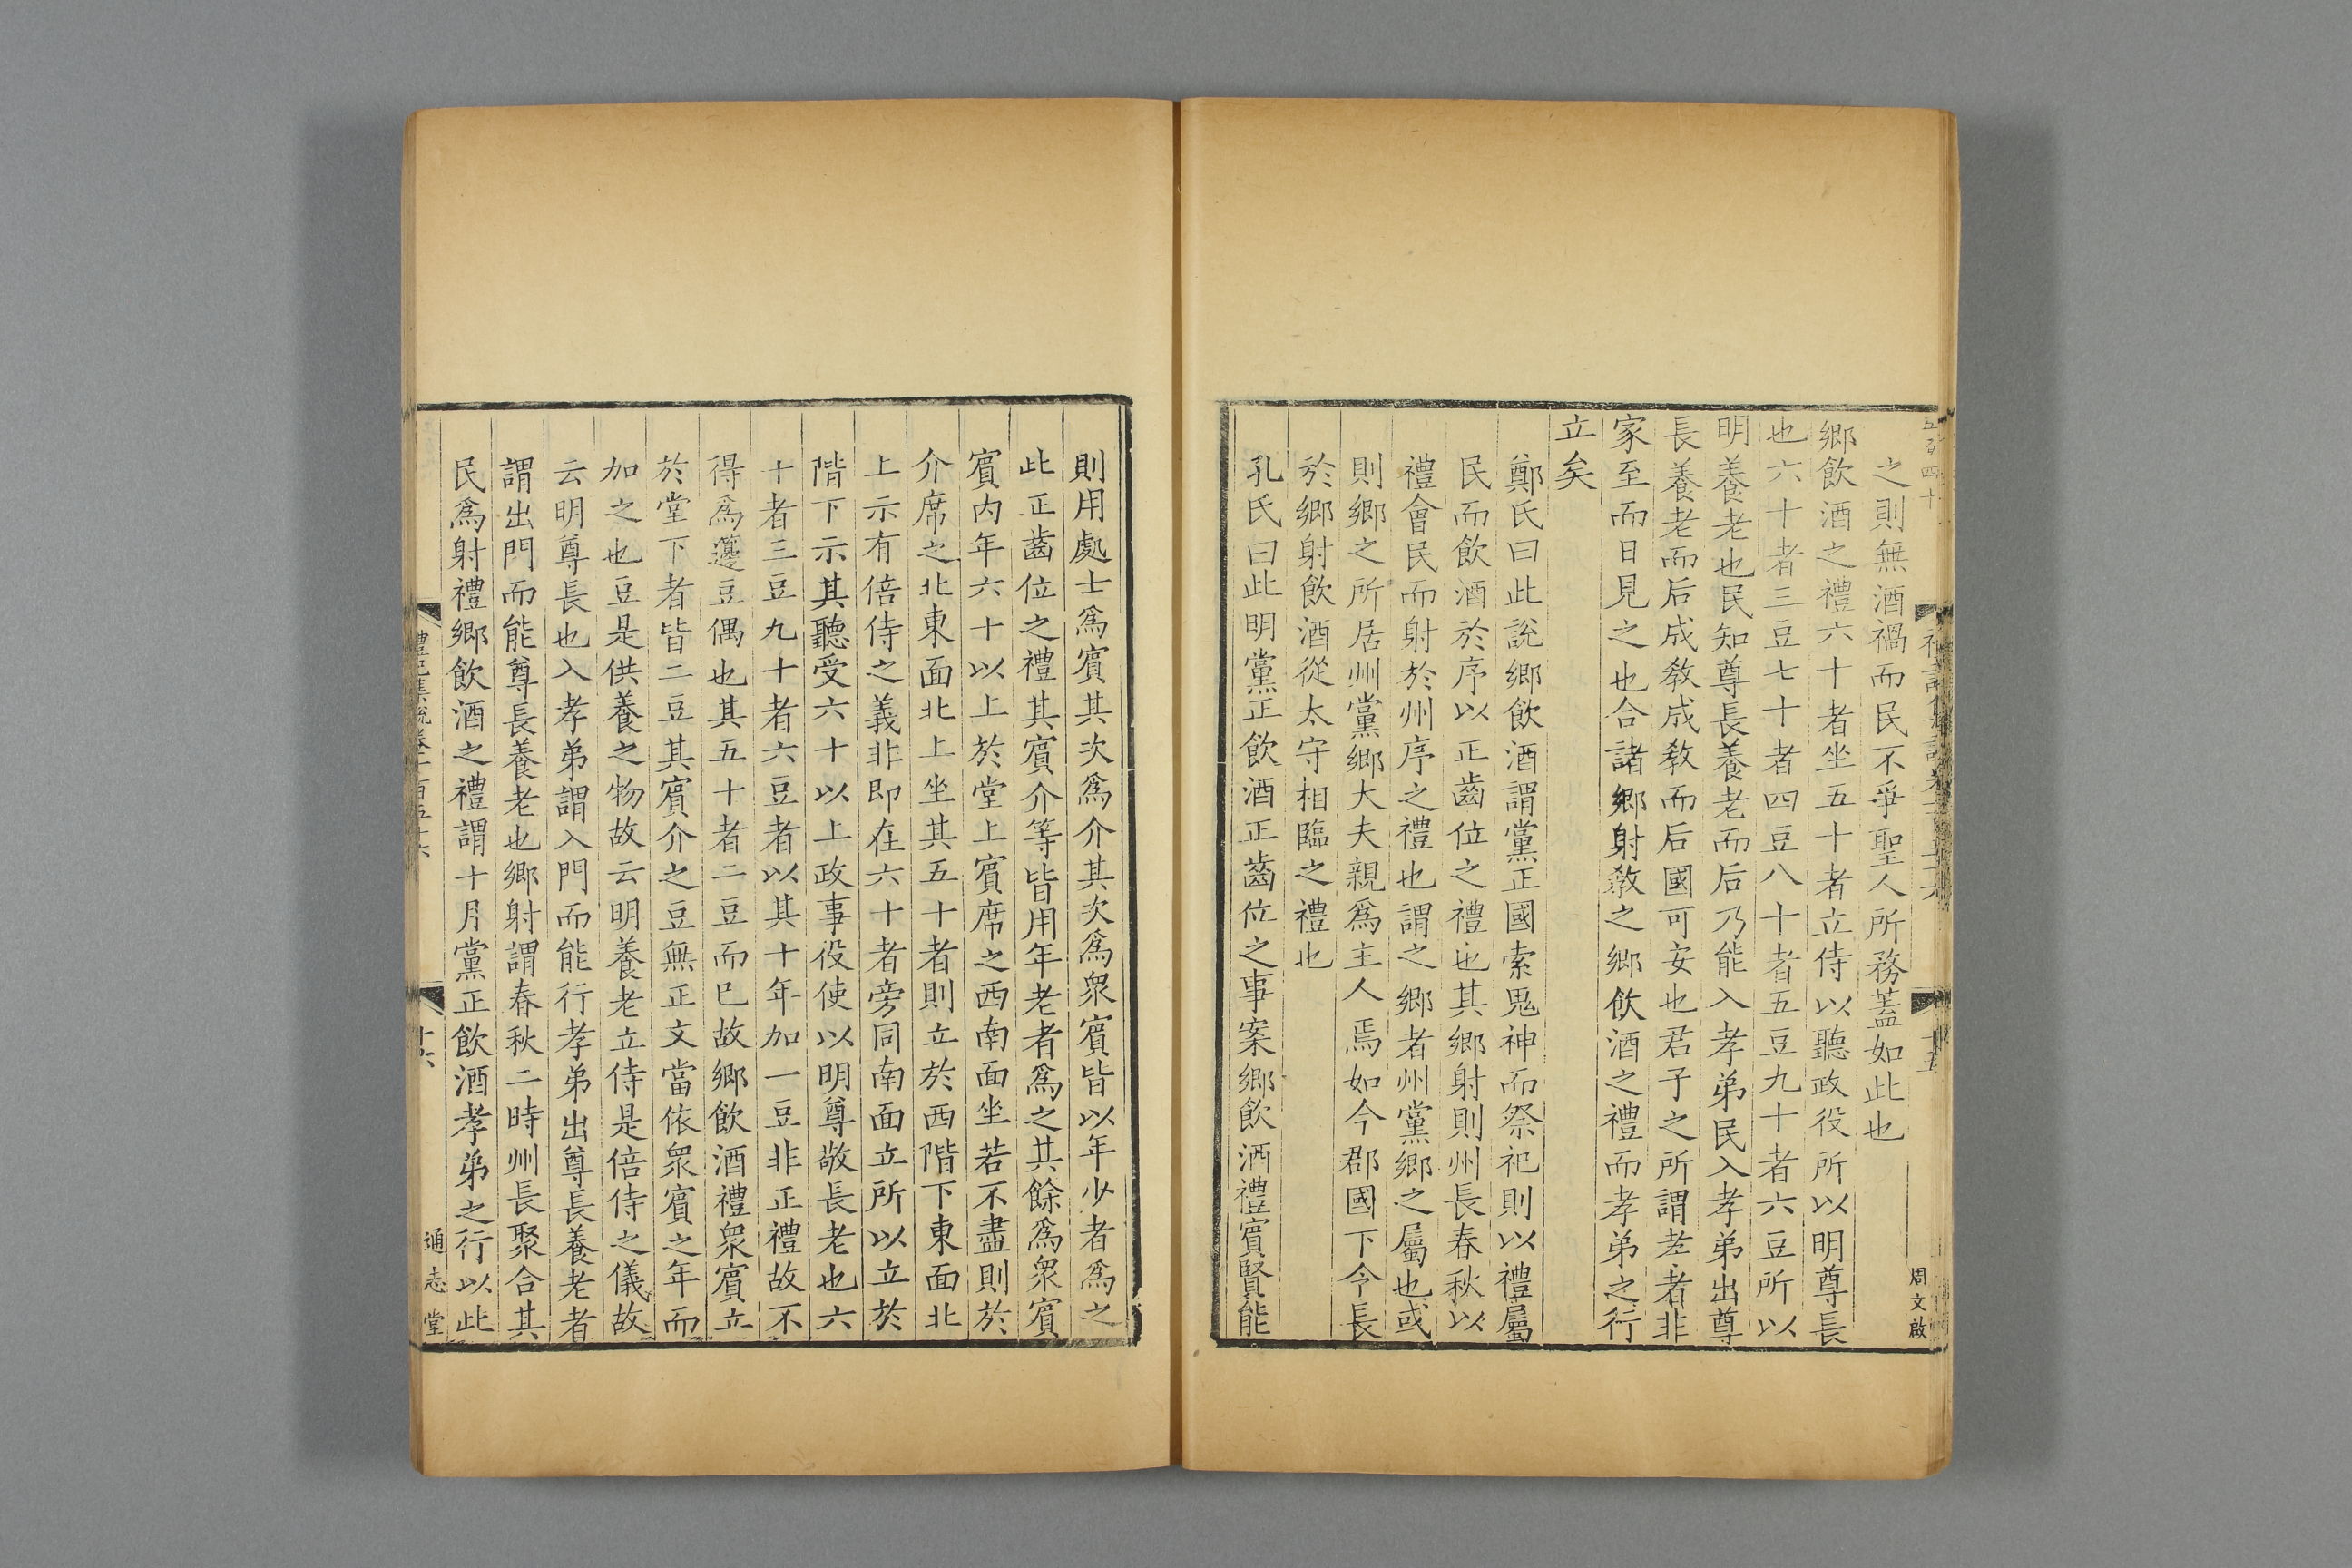 五百四十
周文啟
之則無酒禍而民不爭聖人所務蓋如此也
鄉飲酒之禮六十者坐五十者立侍以聽政役所以明尊長
也六十者三豆七十者四豆八十者五豆九十者六豆所以
明養老也民知尊長養老而后乃能入孝弟民入孝弟出尊
長養老而后成教成教而后國可安也君子之所謂孝者非
家至而日見之也合諸鄉射教之鄉飲酒之禮而孝弟之行
立矣
鄭氏曰此說鄉飲酒謂黨正國索鬼神而祭祀則以禮屬
民而飲酒於序以正齒位之禮也其鄉射則州長春秋以
禮會民而射於州序之禮也謂之鄉者州黨鄉之屬也或
則鄉之所居州黨鄉大夫親為主人焉如今郡國下令長
於鄉射飲酒從太守相臨之禮也
孔氏曰此明黨正飲酒正齒位之事案鄉飲洒禮賓賢能
則用處士為賓其次為介其次為衆賓皆以年少者為之
此正齒位之禮其賓介等皆用年老者為之其餘為衆賓
賓内年六十以上於堂上賓席之西南面坐若不盡則於
介席之北東面北上坐其五十者則立於西階下東面北
上示有倍侍之義非即在六十者旁同南面立所以立於
階下示其聽受六十以上政事役使以明尊敬長老也六
十者三豆九十者六豆者以其十年加一豆非正禮故不
得為籩豆偶也其五十者二豆而已故鄉飲酒禮衆賓立
於堂下者皆二豆其賓介之豆無正文當依衆賓之年而
加之也豆是供養之物故云明養老立侍是倍侍之儀故
云明尊長也入孝弟謂入門而能行孝弟出尊長養老者
謂出門而能尊長養老也鄉射謂春秋二時州長聚合其
民為射禮鄉飲酒之禮謂十月黨正飲酒孝弟之行以此
禮記集說卷一百五十六
十六
通志堂